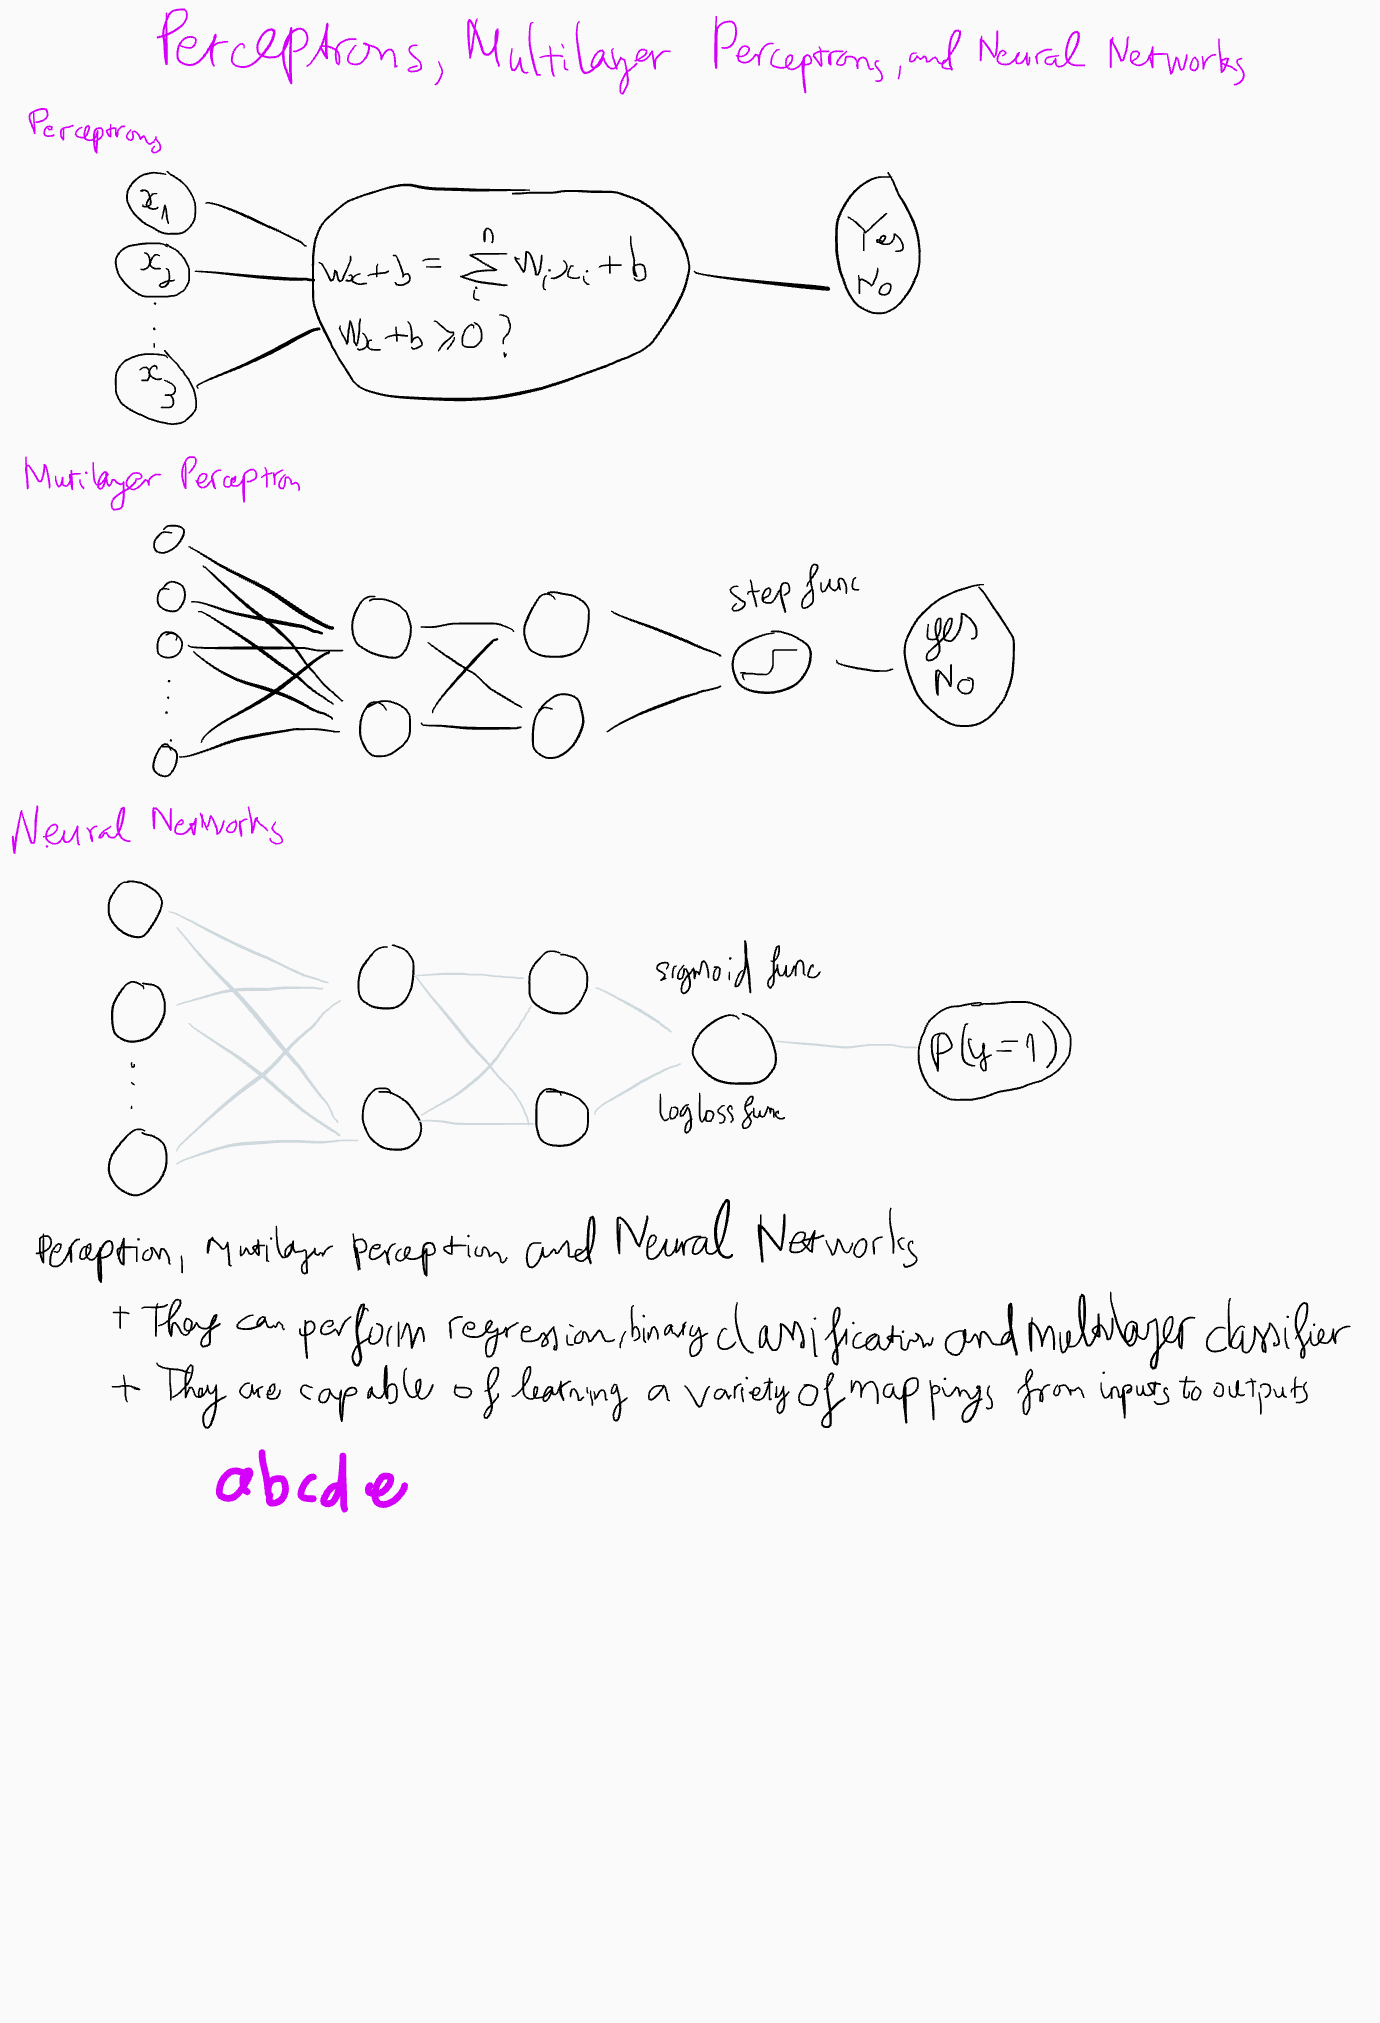 Perceptrons, Multilayer Perceptrons, and Neural Networks
Perceptrons
x₁
x₂
x₃
Wx+b = ∑ᵢⁿ Wᵢxᵢ + b
Wx+b ⩾ 0 ?
Yes
No
Mutilayer Perceptron
step func
yes
No
Neural Networks
sigmoid func
P(y=1)
log loss func
Perception, Mutilayer perception and Neural Networks
+ They can perform regression, binary classification and multilayer classifier
+ They are capable of learning a variety of mappings from inputs to outputs
abcde